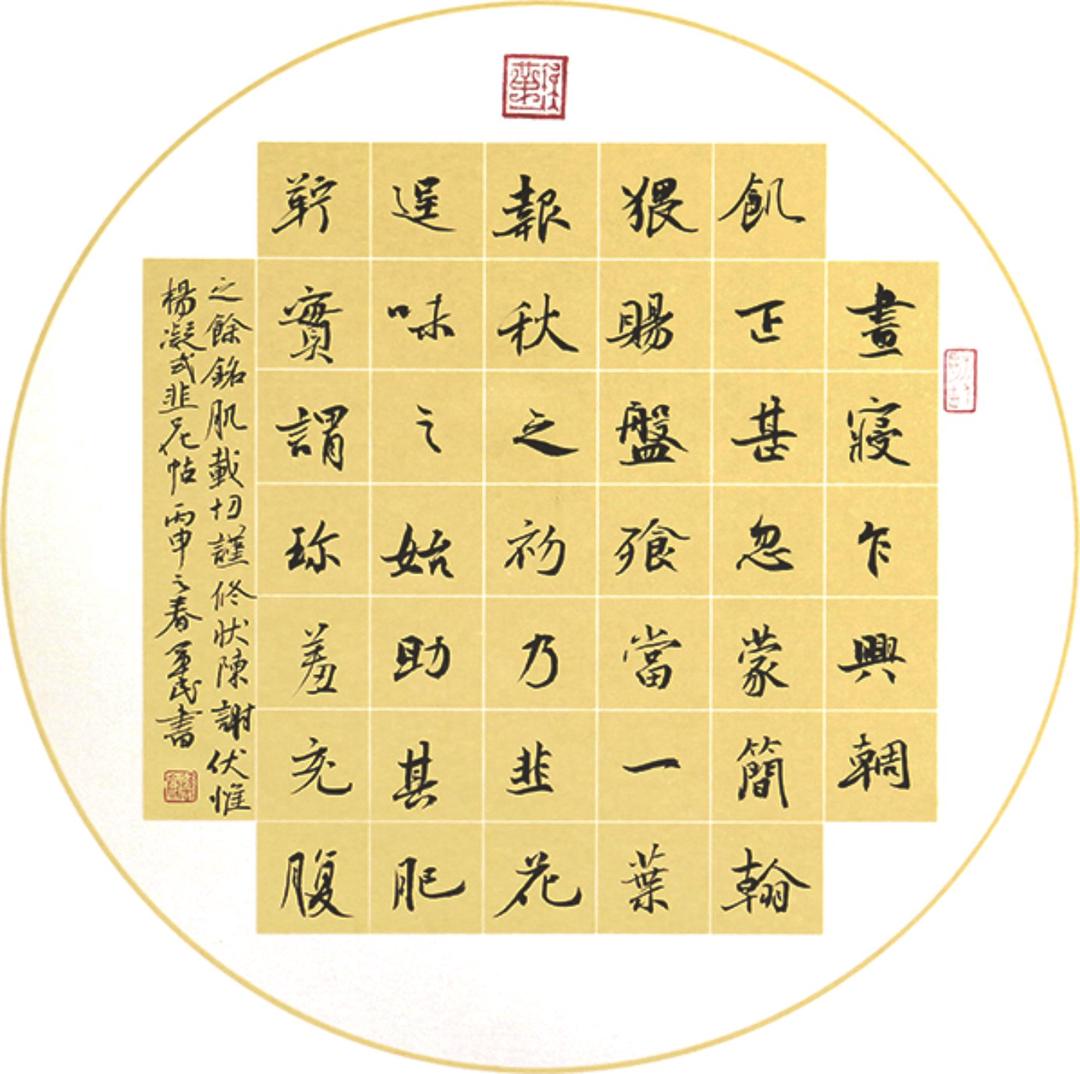 晝寢乍興輖
飢正甚忽蒙簡翰
猥賜盤飱當一葉
報秋之初乃韭花
逞味之始助其肥
羜實謂珍羞充腹
之餘銘肌載切謹修状陳謝伏惟
楊凝式韭花帖丙申之春民書